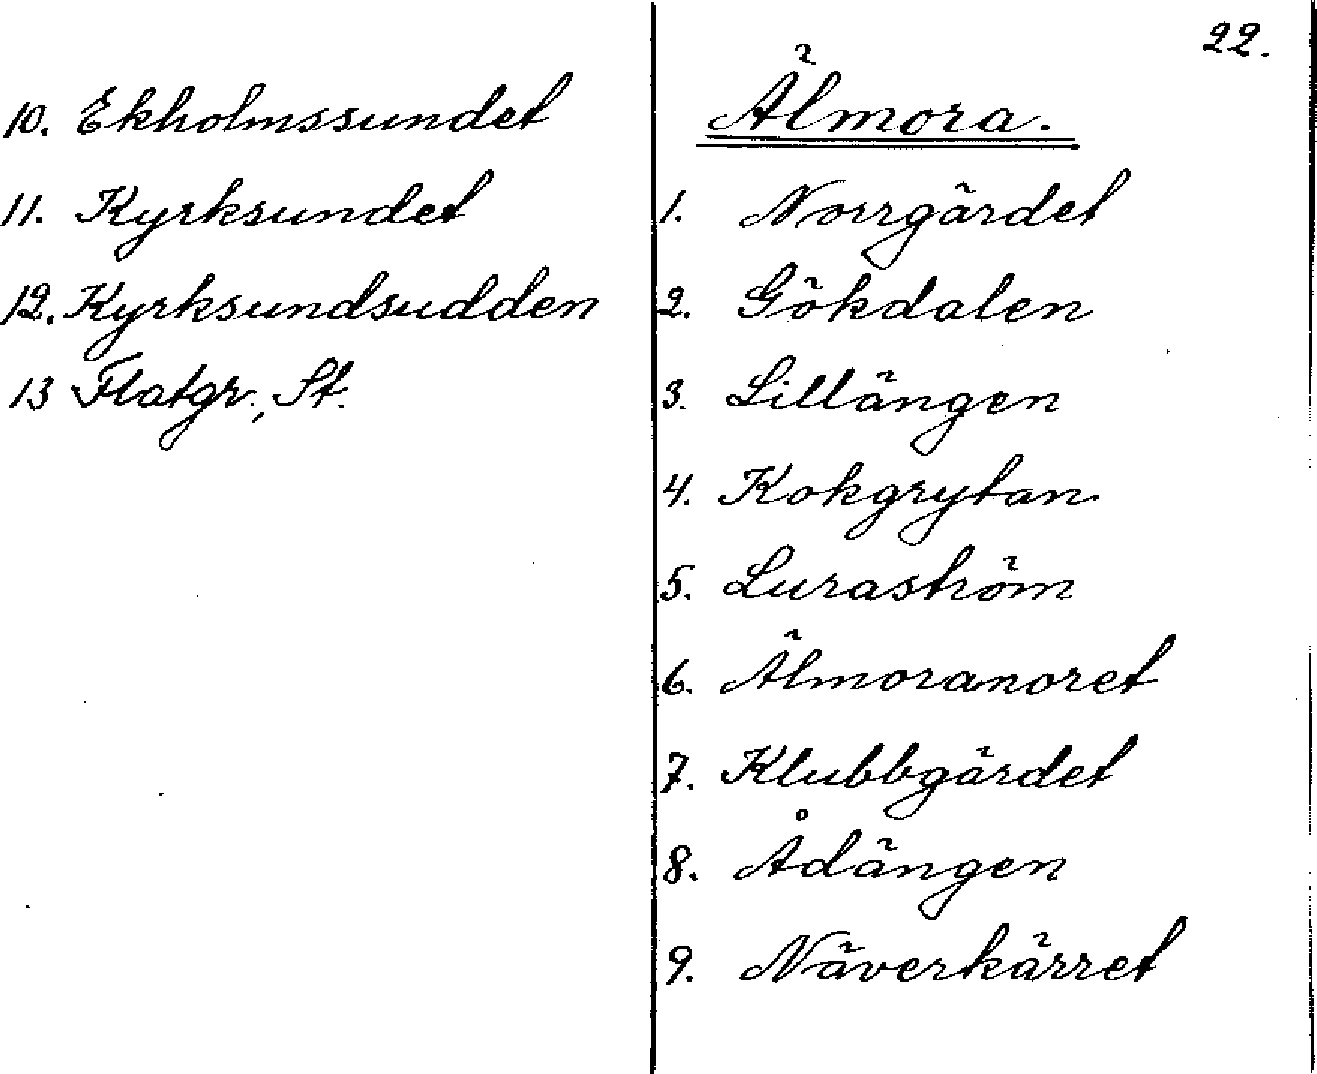 10. Ekholmssundet
11. Kyrksundet
12. Kyrksundsudden
13 Flatgr., St.
22.
Älmora.
1. Norrgärdet
2. Gökdalen
3. Lillängen
4. Kokgrytan
5. Luraström
6. Älmoranoret
7. Klubbgärdet
8. Ådängen
9. Näverkärret